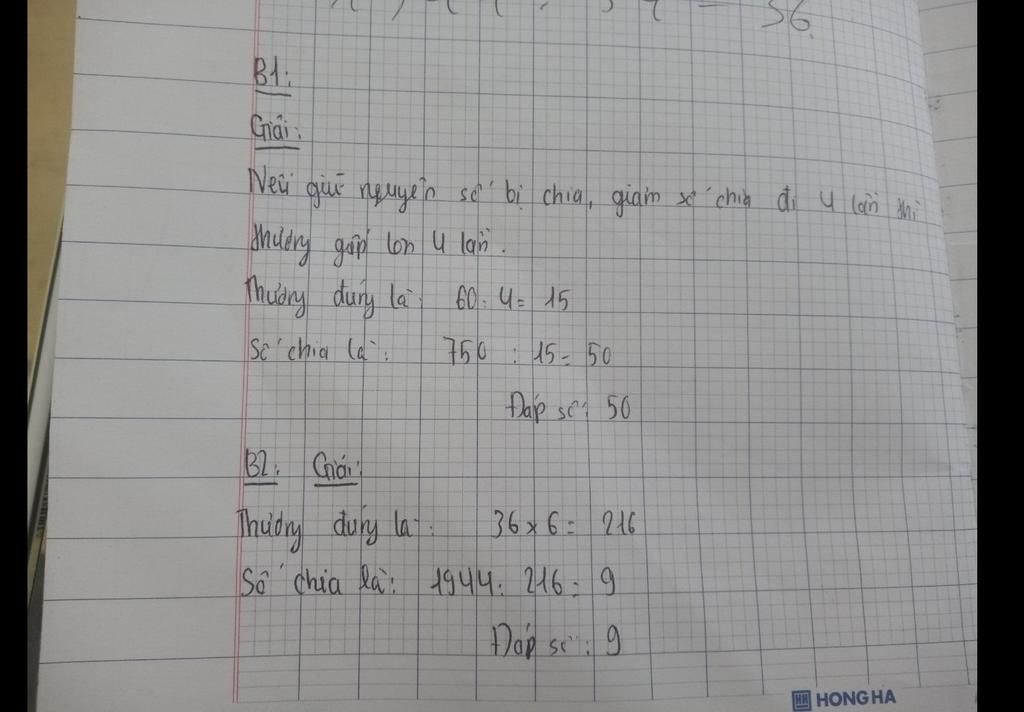 36
B1:
Giải:
Nếu giữ nguyên số bị chia, giảm số chia đi 4 lần thì
thương gấp lên 4 lần.
Thương đúng là: 60 : 4 = 15
Số chia là: 750 : 15 = 50
Đáp số: 50
B2: Giải:
Thương đúng là: 36 x 6 = 216
Số chia là: 1944 : 216 = 9
Đáp số: 9
HH HONG HA